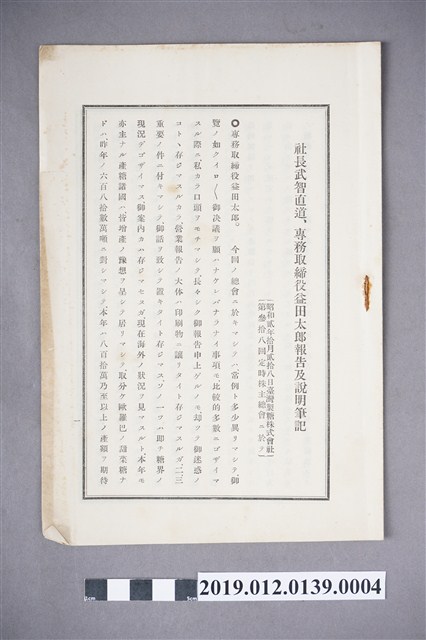 社長武智直道、專務取締役益田太郎報告及說明筆記
昭和貳年拾月貳拾八日臺灣製糖株式會社
第參拾八回定時株主總會ニ於テ
○專務取締役益田太郎。 今回ノ總會ニ於キマシテハ常例ト多少異リマシテ、御
覽ノ如クイロ〱御決議ヲ願ハナケレバナラナイ事項モ比較的多數ニゴザイマ
スル際ニ私カラ口頭ヲモチマシテ、長々シク御報告申上ゲルノモ、却ツテ御迷惑ノ
コトヽ存ジマスルカラ、營業報告ノ大体ハ印刷物ニ讓リタイト存ジマスルガ、二三
重要ノ件ニ付キマシテ、御話ヲ致シテ置キタイト存ジマス、ソノ一ツハ卽ヲ糖界ノ
現況デゴザイマス御案內カハ存ジマセヌガ、現在海外ノ狀況ヲ見マスルト本年モ
亦主ナル產糖諸國ハ皆增產ノ豫想ヲ呈シテ居リマシテ、取分ケ歐羅巴ノ甜菜糖ナ
ドハ、昨年ノ六百八拾數萬噸ニ對シマシテ、本年ハ八百拾萬乃至以上ノ產額ヲ期待
0cm
5cm
2019.012.0139.0004